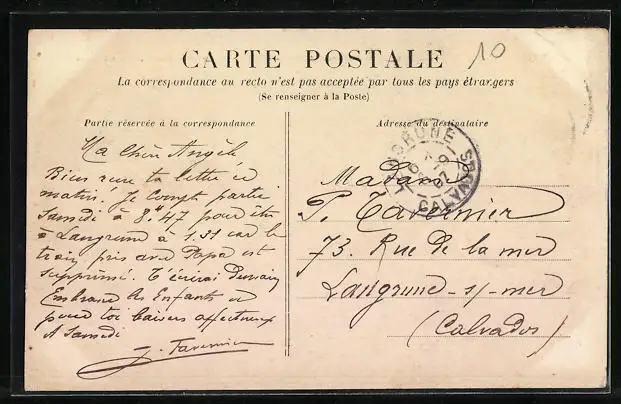 10
CARTE POSTALE
La correspondance au recto n'est pas acceptée par tous les pays étrangers
(Se renseigner à la Poste)
Partie réservée à la correspondance
Adresse du destinataire
Ma Chère Angèle
Bien reçu ta lettre ce
matin. Je compte partir
Samedi à 8.h 47 pour être
à Langrune à 1.31 car le
train pris avec Papa est
supprimé. T'écrirai Demain
Embrasse les Enfants et
pour toi baisers affectueux
A Samedi
J. Tavernier
LANGRUNE
07
CALVADOS
Madame
P. Tavernier
73. Rue de la mer
Langrune-s/-mer
(Calvados)